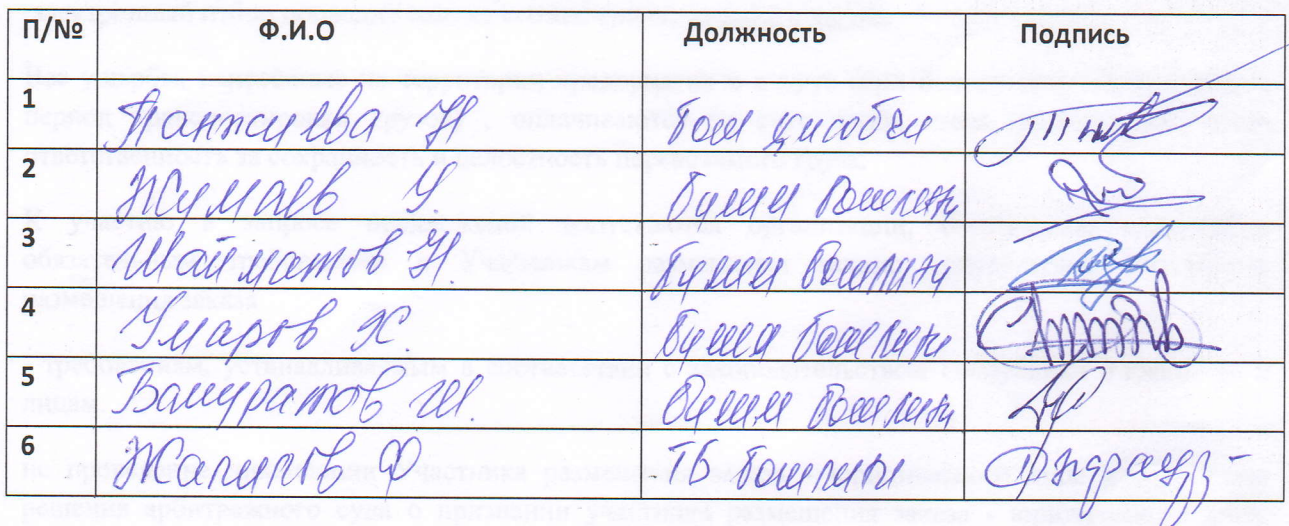 П/№ Ф.И.О Должность Подпись
1 Панжиева Н Бош ҳисобчи
2 Жумаев У. бўлим бошлиғи
3 Шайматов Н. бўлим бошлиғи
4 Умаров Х. бўлим бошлиғи
5 Баширатов Ш. бўлим бошлиғи
6 Жалилов Ф ТБ бошлиғи